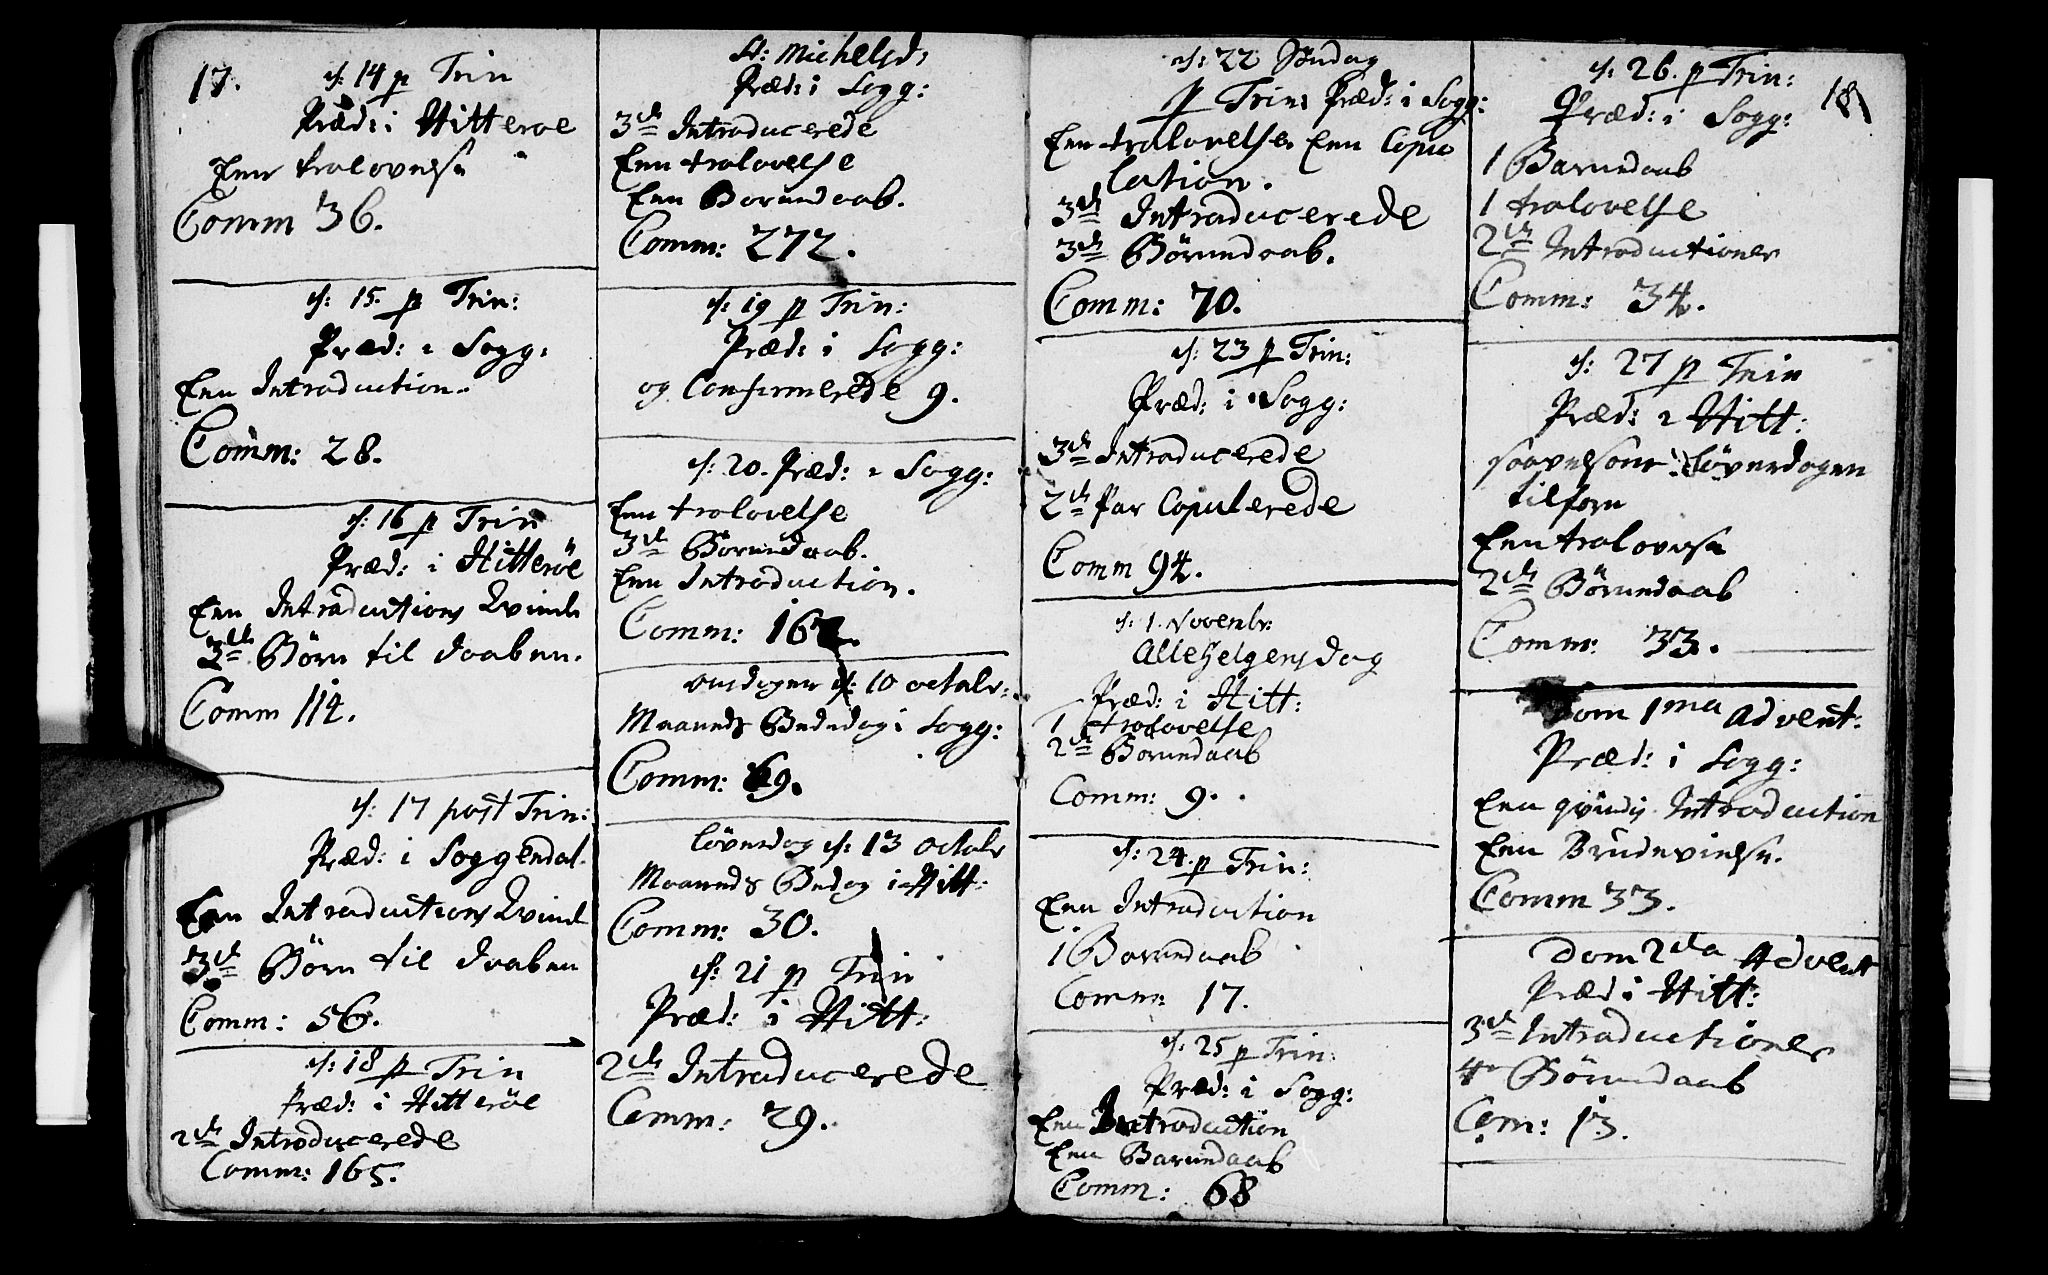 17.
d: 14 p Trin
Præd: i Hitterøe
Een trolovelse
Comm 36.
d: 15. p Trin:
Præd: i Sogg:
Een Introduction.
Comm: 28.
d: 16 p Trin
Præd: i Hitterøe
Een Introductions Qvinde
Børn til daaben.
Comm 114.
d: 17 post Trin:
Præd: i Soggendal.
Een Introductions Qvinde
3de Børn til daaben
Comm: 56.
d: 18 p Trin
Præd: i Hitterøe
2de Introducerede
Comm: 165.
St: Michelsd:
Præd: i Sogg:
3de Introducerede
Een trolovelse
Een Barnedaab.
Comm: 272.
d: 19 p Trin:
Præd: i Sogg:
og Confirmerede 9.
d: 20. Præd: i Sogg:
Een trolovelse
3de Børnedaab.
Een Introduction.
Comm:
onsdagen d: 10 octobr:
Maaneds Bededag i Sogg:
Comm: 69.
Løverdag d: 13 octobr
Maaneds Bedag i Hitt:
Comm: 30.
d: 21 p Trin
Præd: i Hitt:
2de Introducerede
Comm: 29.
d: 22 Søndag
p Trin: Præd: i Sogg:
Een trolovelse Een Copu
lation.
3de Introducerede
3de Børnedaab.
Comm: 70.
d: 23 p Trin:
Præd: i Sogg:
3de Introducerede
2de Par Copulerede
Comm 94.
d: 1. Novembr:
Allehelgensdag
Præd: i Hitt:
1 trolovelse
2de Barnedaab
Comm: 9.
d: 24. p Trin:
Een Introduction
1 Barnedaab
Comm: 17.
d: 25 p Trin:
Præd: i Sogg:
Een Introduction
Een Barnedaab
Comm: 68
18
d: 26. p Trin:
Præd: i Sogg:
1 Barnedaab
1 trolovelse
2de Introductioner
Comm: 34.
d: 27 p Trin
Præd: i Hitt:
saavelsom Løverdagen
tilforn
Een trolovelse
2de Børnedaab
Comm: 33.
Dom 1ma Advent:
Præd: i Sogg:
Een qvindes Introduction
Een Brudevielse.
Comm 33.
Dom 2da Advent
Præd i Hitt:
3de Introductioner
4re Børnedaab
Com: 13.